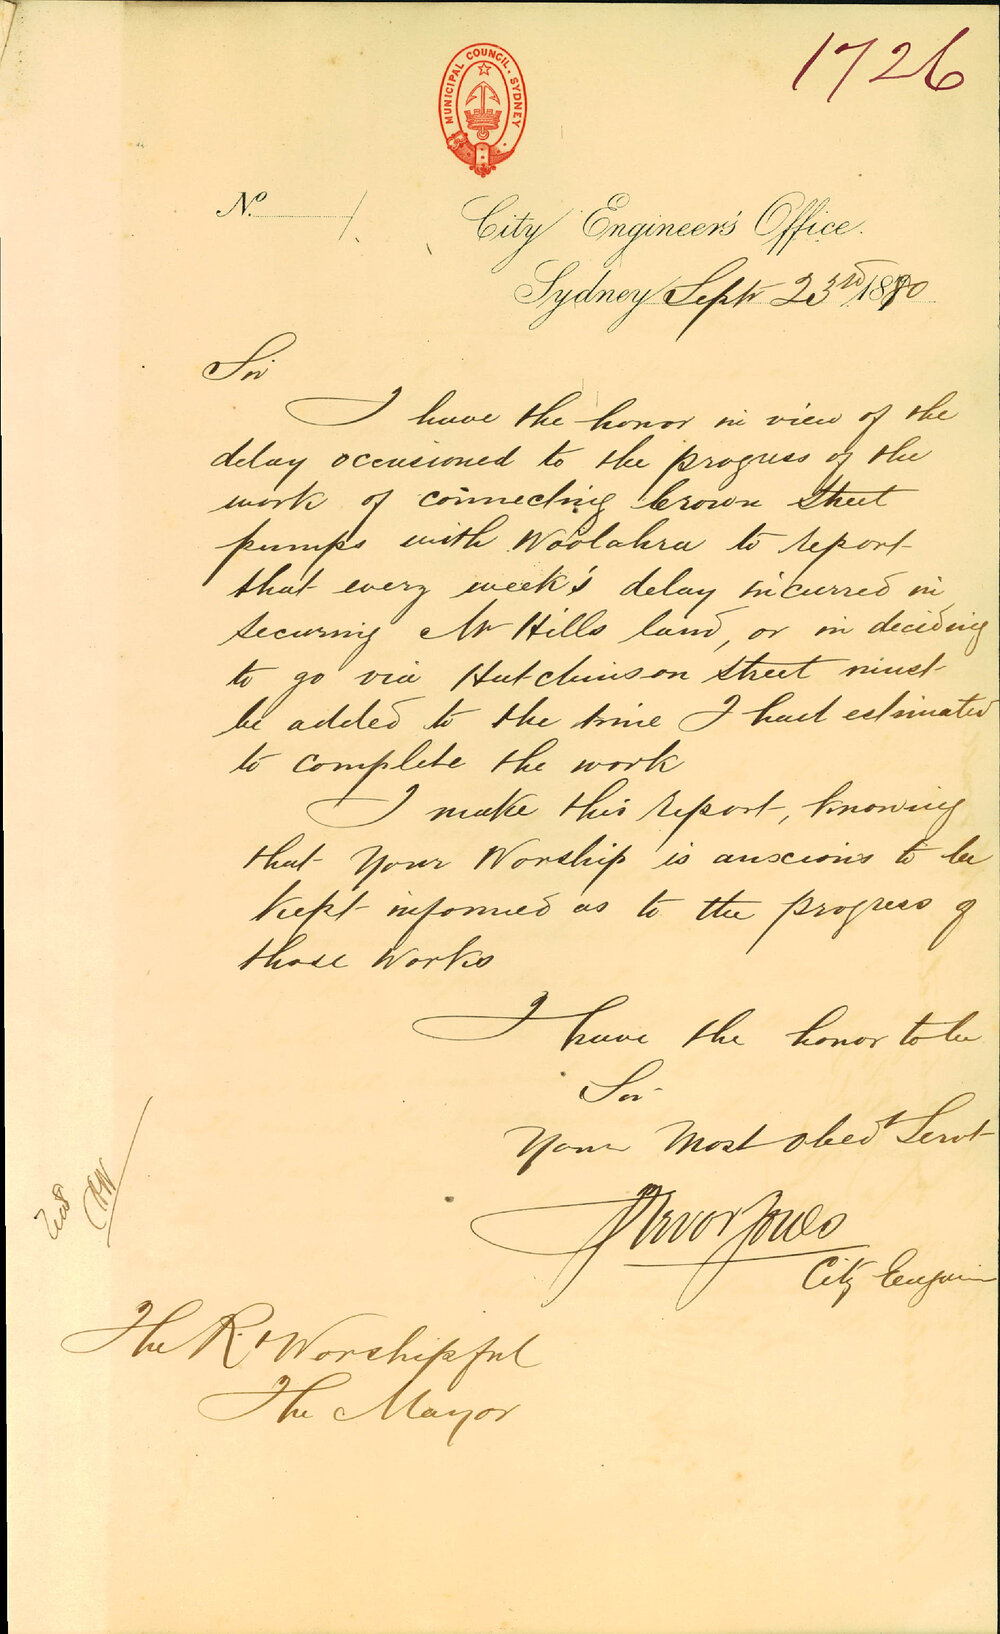 1726
MUNICIPAL COUNCIL. SYDNEY
No.
City Engineer's Office.
Sydney Septr 23rd 1880
Sir
I have the honor in view of the
delay occasioned to the progress of the
work of connecting Crown Street
pumps with Woolahra to report
that every week's delay incurred in
securing Mr Hills land, or in deciding
to go via Hutchinson Street must
be added to the time I had estimated
to complete the work
I make this report, knowing
that Your Worship is anxcious to be
kept informed as to the progress of
those works
I have the honor to be
Sir
Your Most Obedt Servt
Trevor Jones
City Engineer
The Rt Worshipful
The Mayor